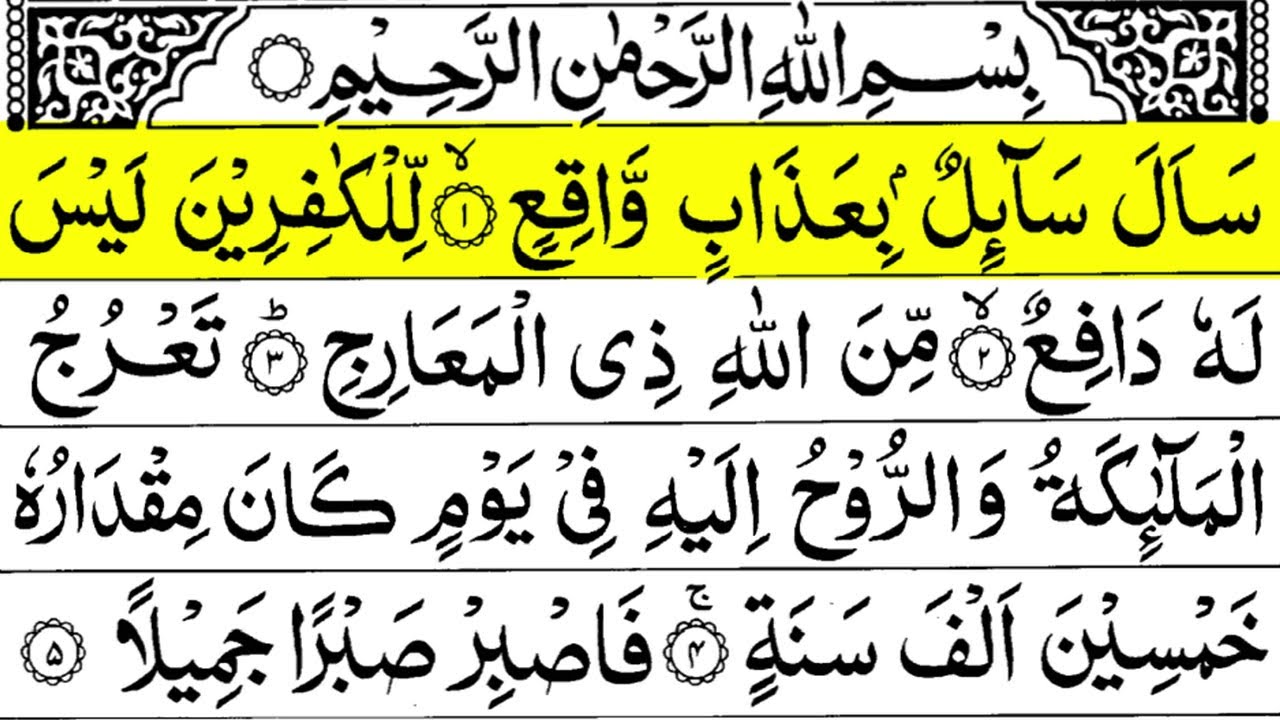 بِسْمِ اللّٰهِ الرَّحْمٰنِ الرَّحِيْمِ
سَاَلَ سَآئِلٌۢ بِعَذَابٍ وَّاقِعٍ ۙ﴿۱﴾ لِّلْكٰفِرِيْنَ لَيْسَ
لَهٗ دَافِعٌ ۙ﴿۲﴾ مِّنَ اللّٰهِ ذِى الْمَعَارِجِ ؕ﴿۳﴾ تَعْرُجُ
الْمَلٰٓئِكَةُ وَالرُّوْحُ اِلَيْهِ فِىْ يَوْمٍ كَانَ مِقْدَارُهٗ
خَمْسِيْنَ اَلْفَ سَنَةٍ ۚ﴿۴﴾ فَاصْبِرْ صَبْرًا جَمِيْلًا ﴿۵﴾